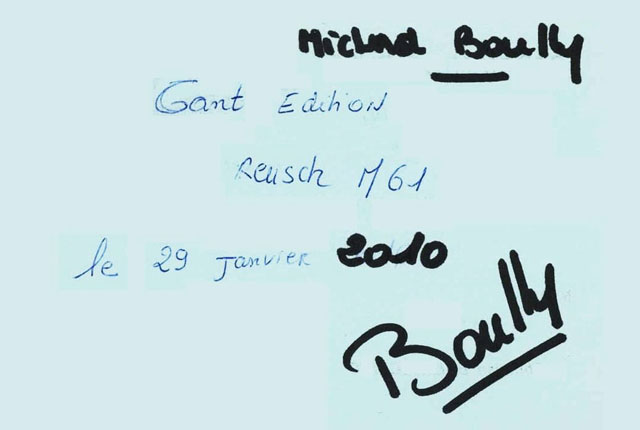 Michael Boully
Gant Edition
Reusch M61
le 29 janvier 2010
Boully